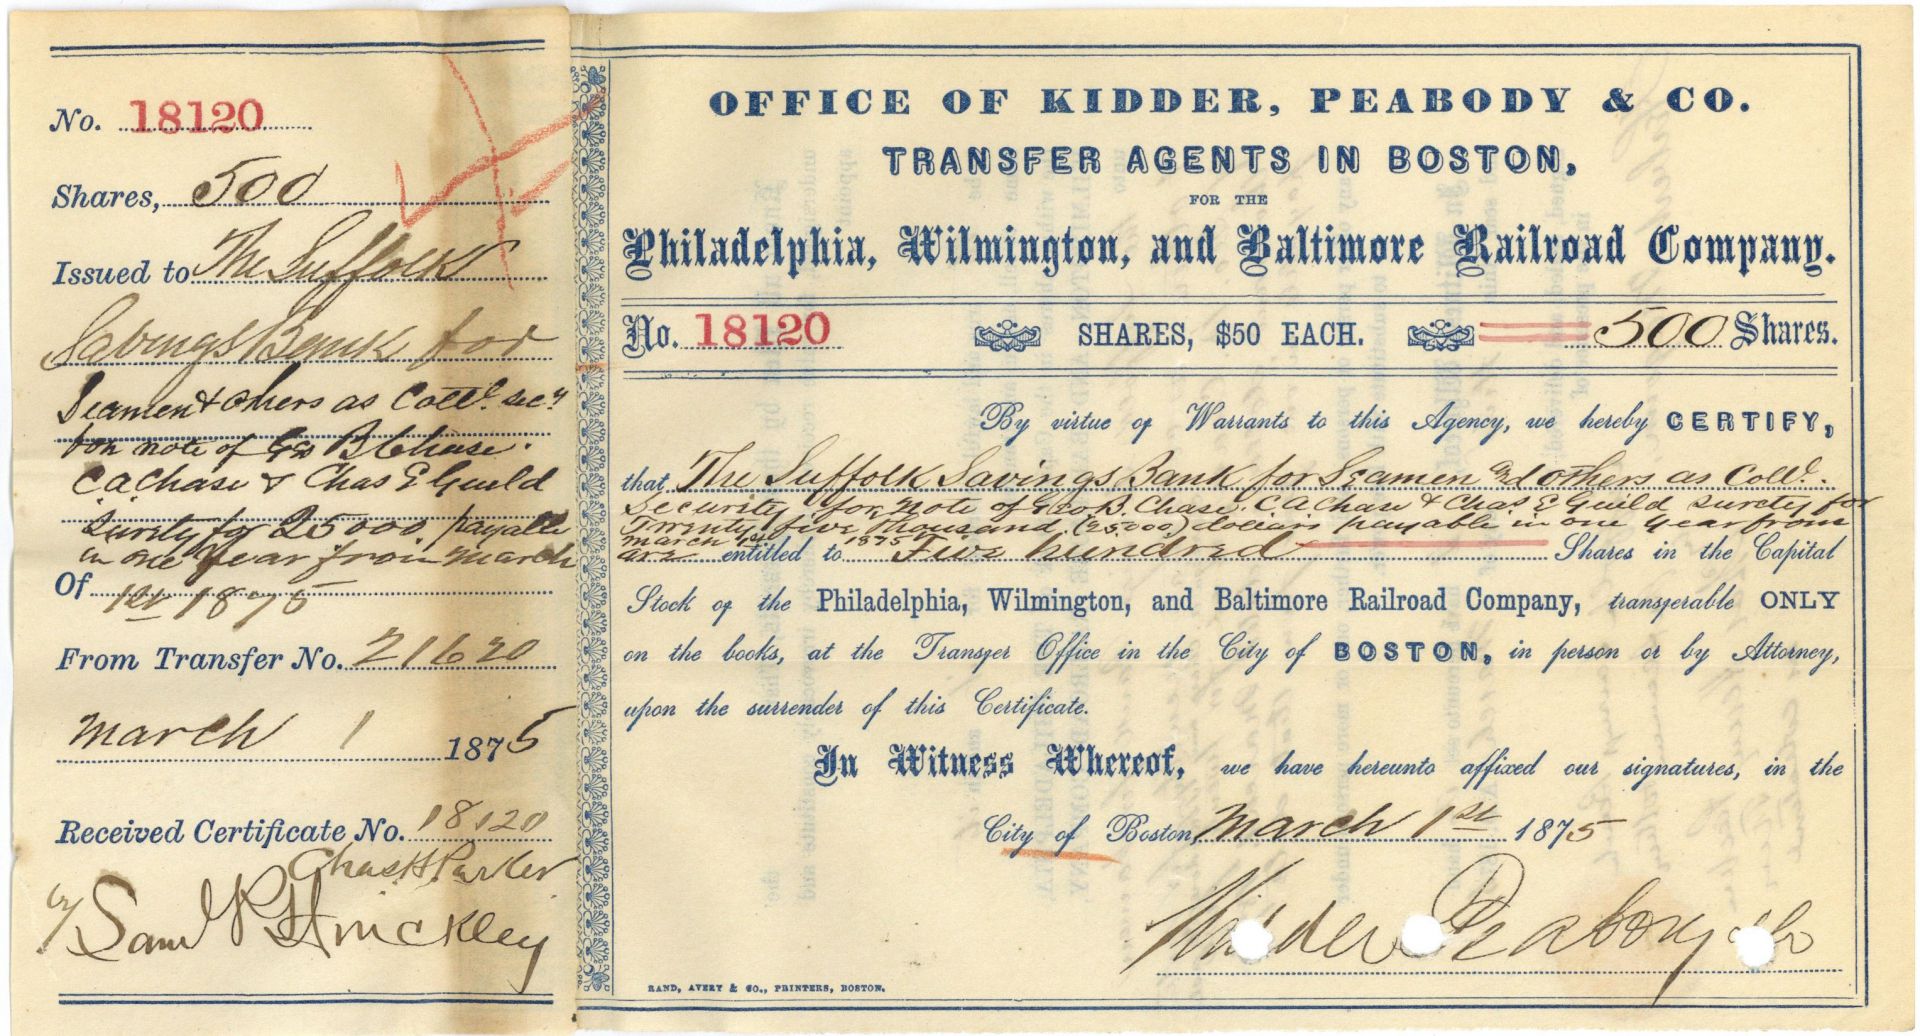 No. 18120
Shares, 500
Issued to The Suffolk
Savings Bank for
Seamen & others as Coll. secy
for note of Geo B Chase.
C.A. Chase & Chas E Guild
surety for 25000. payable
in one year from March
Of 1st 1875
From Transfer No. 21620
March 1 1875
Received Certificate No. 18120
Chas H Parker
by Saml P Hinckley
OFFICE OF KIDDER, PEABODY & CO.
TRANSFER AGENTS IN BOSTON,
FOR THE
Philadelphia, Wilmington, and Baltimore Railroad Company.
No. 18120 SHARES, $50 EACH. 500 Shares.
By virtue of Warrants to this Agency, we hereby CERTIFY,
that The Suffolk Savings Bank for Seamen and others as Coll.
Security for note of Geo B. Chase. C A Chase & Chas E Guild surety for
Twenty five thousand (25.000) dollars payable in one year from
March 1st 1875
are entitled to Five hundred Shares in the Capital
Stock of the Philadelphia, Wilmington, and Baltimore Railroad Company, transferable ONLY
on the books, at the Transfer Office in the City of BOSTON, in person or by Attorney,
upon the surrender of this Certificate.
In Witness Whereof, we have hereunto affixed our signatures, in the
City of Boston, March 1st 1875
Kidder Peabody & Co
RAND, AVERY & CO., PRINTERS, BOSTON.